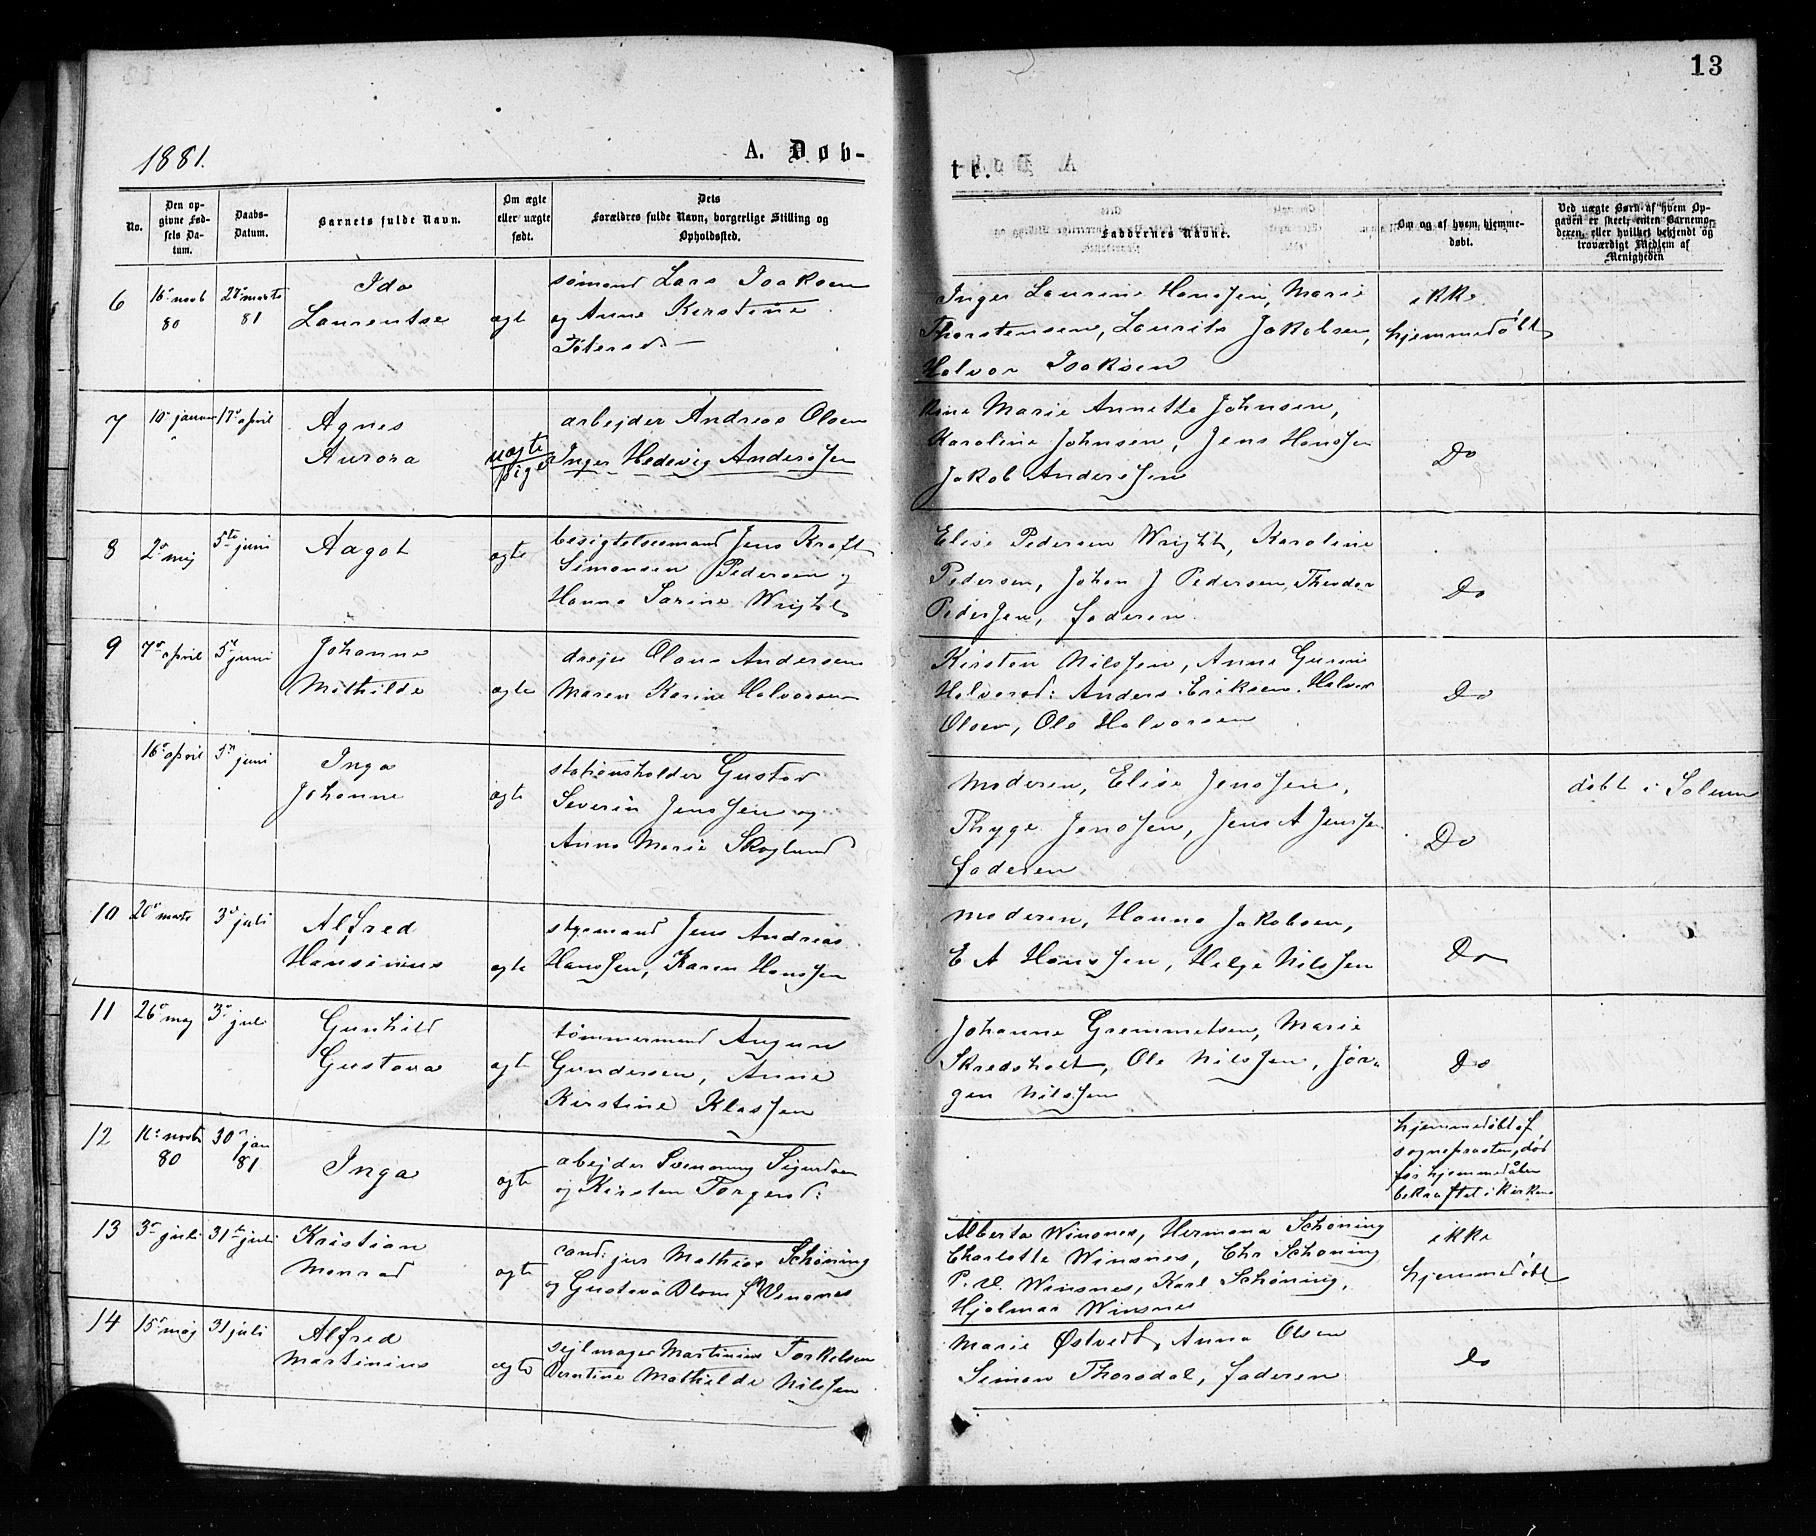 13
1881.
A. Døb-
te.
No.
Den op-
givne Fød-
sels Da-
tum.
Daabs-
Datum.
Barnets fulde Navn.
Om ægte
eller uægte
født.
Dets
Forældres fulde Navn, borgerlige Stilling og
Opholdssted.
Faddernes Navne.
Om og af hvem hjemme-
døbt.
Ved uægte Børn af hvem Op-
gaven er skeet, enten Barnemo-
deren, eller hvilket bekjendt og
troværdigt Medlem af
Menigheden
6
80
81
Ida
Laurentse
ægte
sømand Lars Isaksen
og Anne Kirstine
Inger Laurine Hanssen, Marie
Thorstensen, Laurits Jakobsen,
Halvor Isaksen
ikke
hjemmedøbt
7
10 januar
17 april
Agnes
Aurora
uægte
pige
arbejder Andreas Olsen
Inger Hedevig Anderssen
Marie Annette Johnsen,
Karoline Johnsen, Jens Hanssen
Jakob Anderssen
Do
8
2 maj
5te juni
Aagot
ægte
besigtelsesmand Jens Kraft
Simonsen Pedersen og
Hanna Sarine Wright
Elise Pedersen Wright, Karoline
Pedersen, Johan J Pedersen, Theodor
Pederssen, faderen
Do
9
7 april
5 juni
Johanne
Mathilde
ægte
drejer Olaus Andersen
Maren Karine Halvorsen
Kirsten Nilssen, Anne Gurine
Halvorsd: Anders Eriksen, Halvor
Olsen, Ole Halvorsen
Do
16 april
5 juni
Inga
Johanne
ægte
stationsholder Gustav
Severin Jenssen og
Anna Marie Skoglund
moderen, Elise Jenssen,
Thyge Jenssen, Jens A Jenssen
faderen
Do
døbt i Solum
10
20 marts
3 juli
Alfred
Hansinius
ægte
styrmand Jens Andreas
Hanssen, Karen Hanssen
moderen, Hanna Jakobsen,
E A Hanssen, Helge Nilssen
Do
11
26 maj
3 juli
Gunhild
Gustava
ægte
tømmermand Augun
Gundersen, Anne
Kirstine Klassen
Johanne Gremmetsen, Marie
Skredsholt, Ole Nilssen, Jør-
gen Nilssen
Do
12
80
30 jan
81
Inga
ægte
abejder Svennung Sigurdsen
og Kirsten Torgersd:
hjemmedøbt af
sognepresten, død
før hjemmedåben
bekræftet i kirken
13
3 juli
31te juli
Kristian
Monrad
ægte
cand: jur Mathias Schøning
og Gustava Blom f Winsnes
Alberta Winsnes, Hermana Schøning
Charlotte Winsnes, Chr Schøning
P. V. Winsnes, Karl Schøning,
Hjalmar Winsnes
ikke
hjemmedøbt
14
15 maj
31 juli
Alfred
Martinius
ægte
sejlmager Martinius Torkelsen
Berntine Mathilde Nilssen
Marie Østvedt, Anna Olsen
Simon Thorsdal, faderen
do